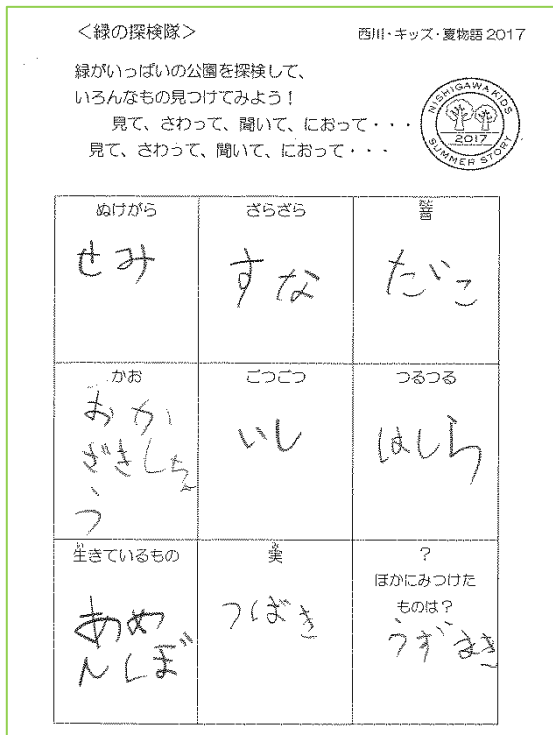 ＜緑の探検隊＞
西川・キッズ・夏物語 2017
緑がいっぱいの公園を探検して、
いろんなもの見つけてみよう！
見て、さわって、聞いて、におって・・・
見て、さわって、聞いて、におって・・・
NISHIGAWA KIDS
2017
SUMMER STORY
ぬけがら
せみ
ざらざら
すな
音
たいこ
かお
おか
ざきしちょ
う
ごつごつ
いし
つるつる
はしら
生きているもの
あめ
んぼ
実
つばき
？
ほかにみつけた
ものは？
うずまき